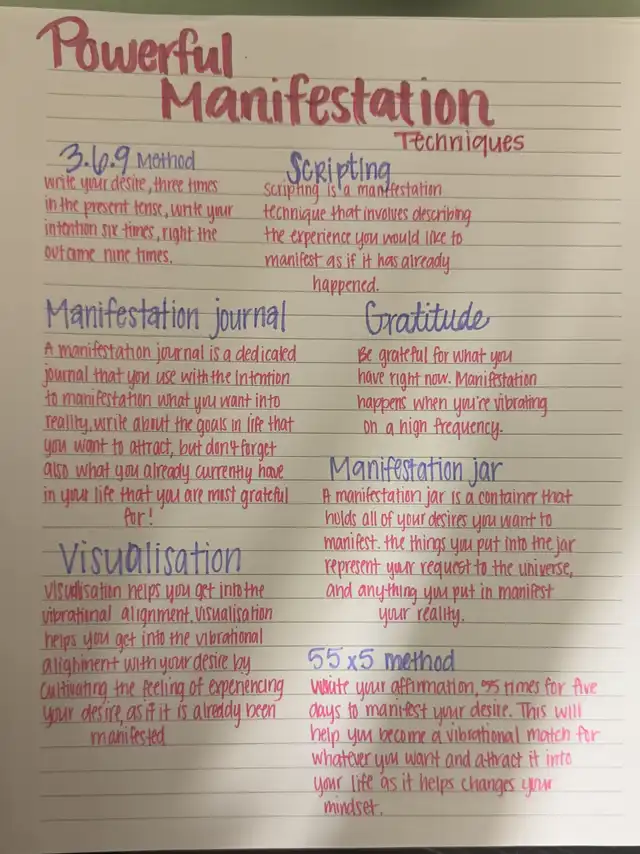 Powerful
Manifestation
Techniques
3.6.9 Method
write your desire, three times
in the present tense, write your
intention six times, right the
outcome nine times.
Scripting
scripting is a manifestation
technique that involves describing
the experience you would like to
manifest as if it has already
happened.
Manifestation journal
A manifestation journal is a dedicated
journal that you use with the intention
to manifestation what you want into
reality. write about the goals in life that
you want to attract, but don't forget
also what you already currently have
in your life that you are most grateful
for!
Gratitude
Be grateful for what you
have right now. Manifestation
happens when you're vibrating
on a high frequency.
Manifestation jar
A manifestation jar is a container that
holds all of your desires you want to
manifest. the things you put into the jar
represent your request to the universe,
and anything you put in manifest
your reality.
Visualisation
visualisation helps you get into the
vibrational alignment. visualisation
helps you get into the vibrational
alignment with your desire by
cultivating the feeling of experiencing
your desire, as if it is alreddy been
manifested
55x5 method
write your affirmation, 55 times for five
days to manifest your desire. This will
help you become a vibrational match for
whatever you want and attract it into
your life as it helps changes your
mindset.